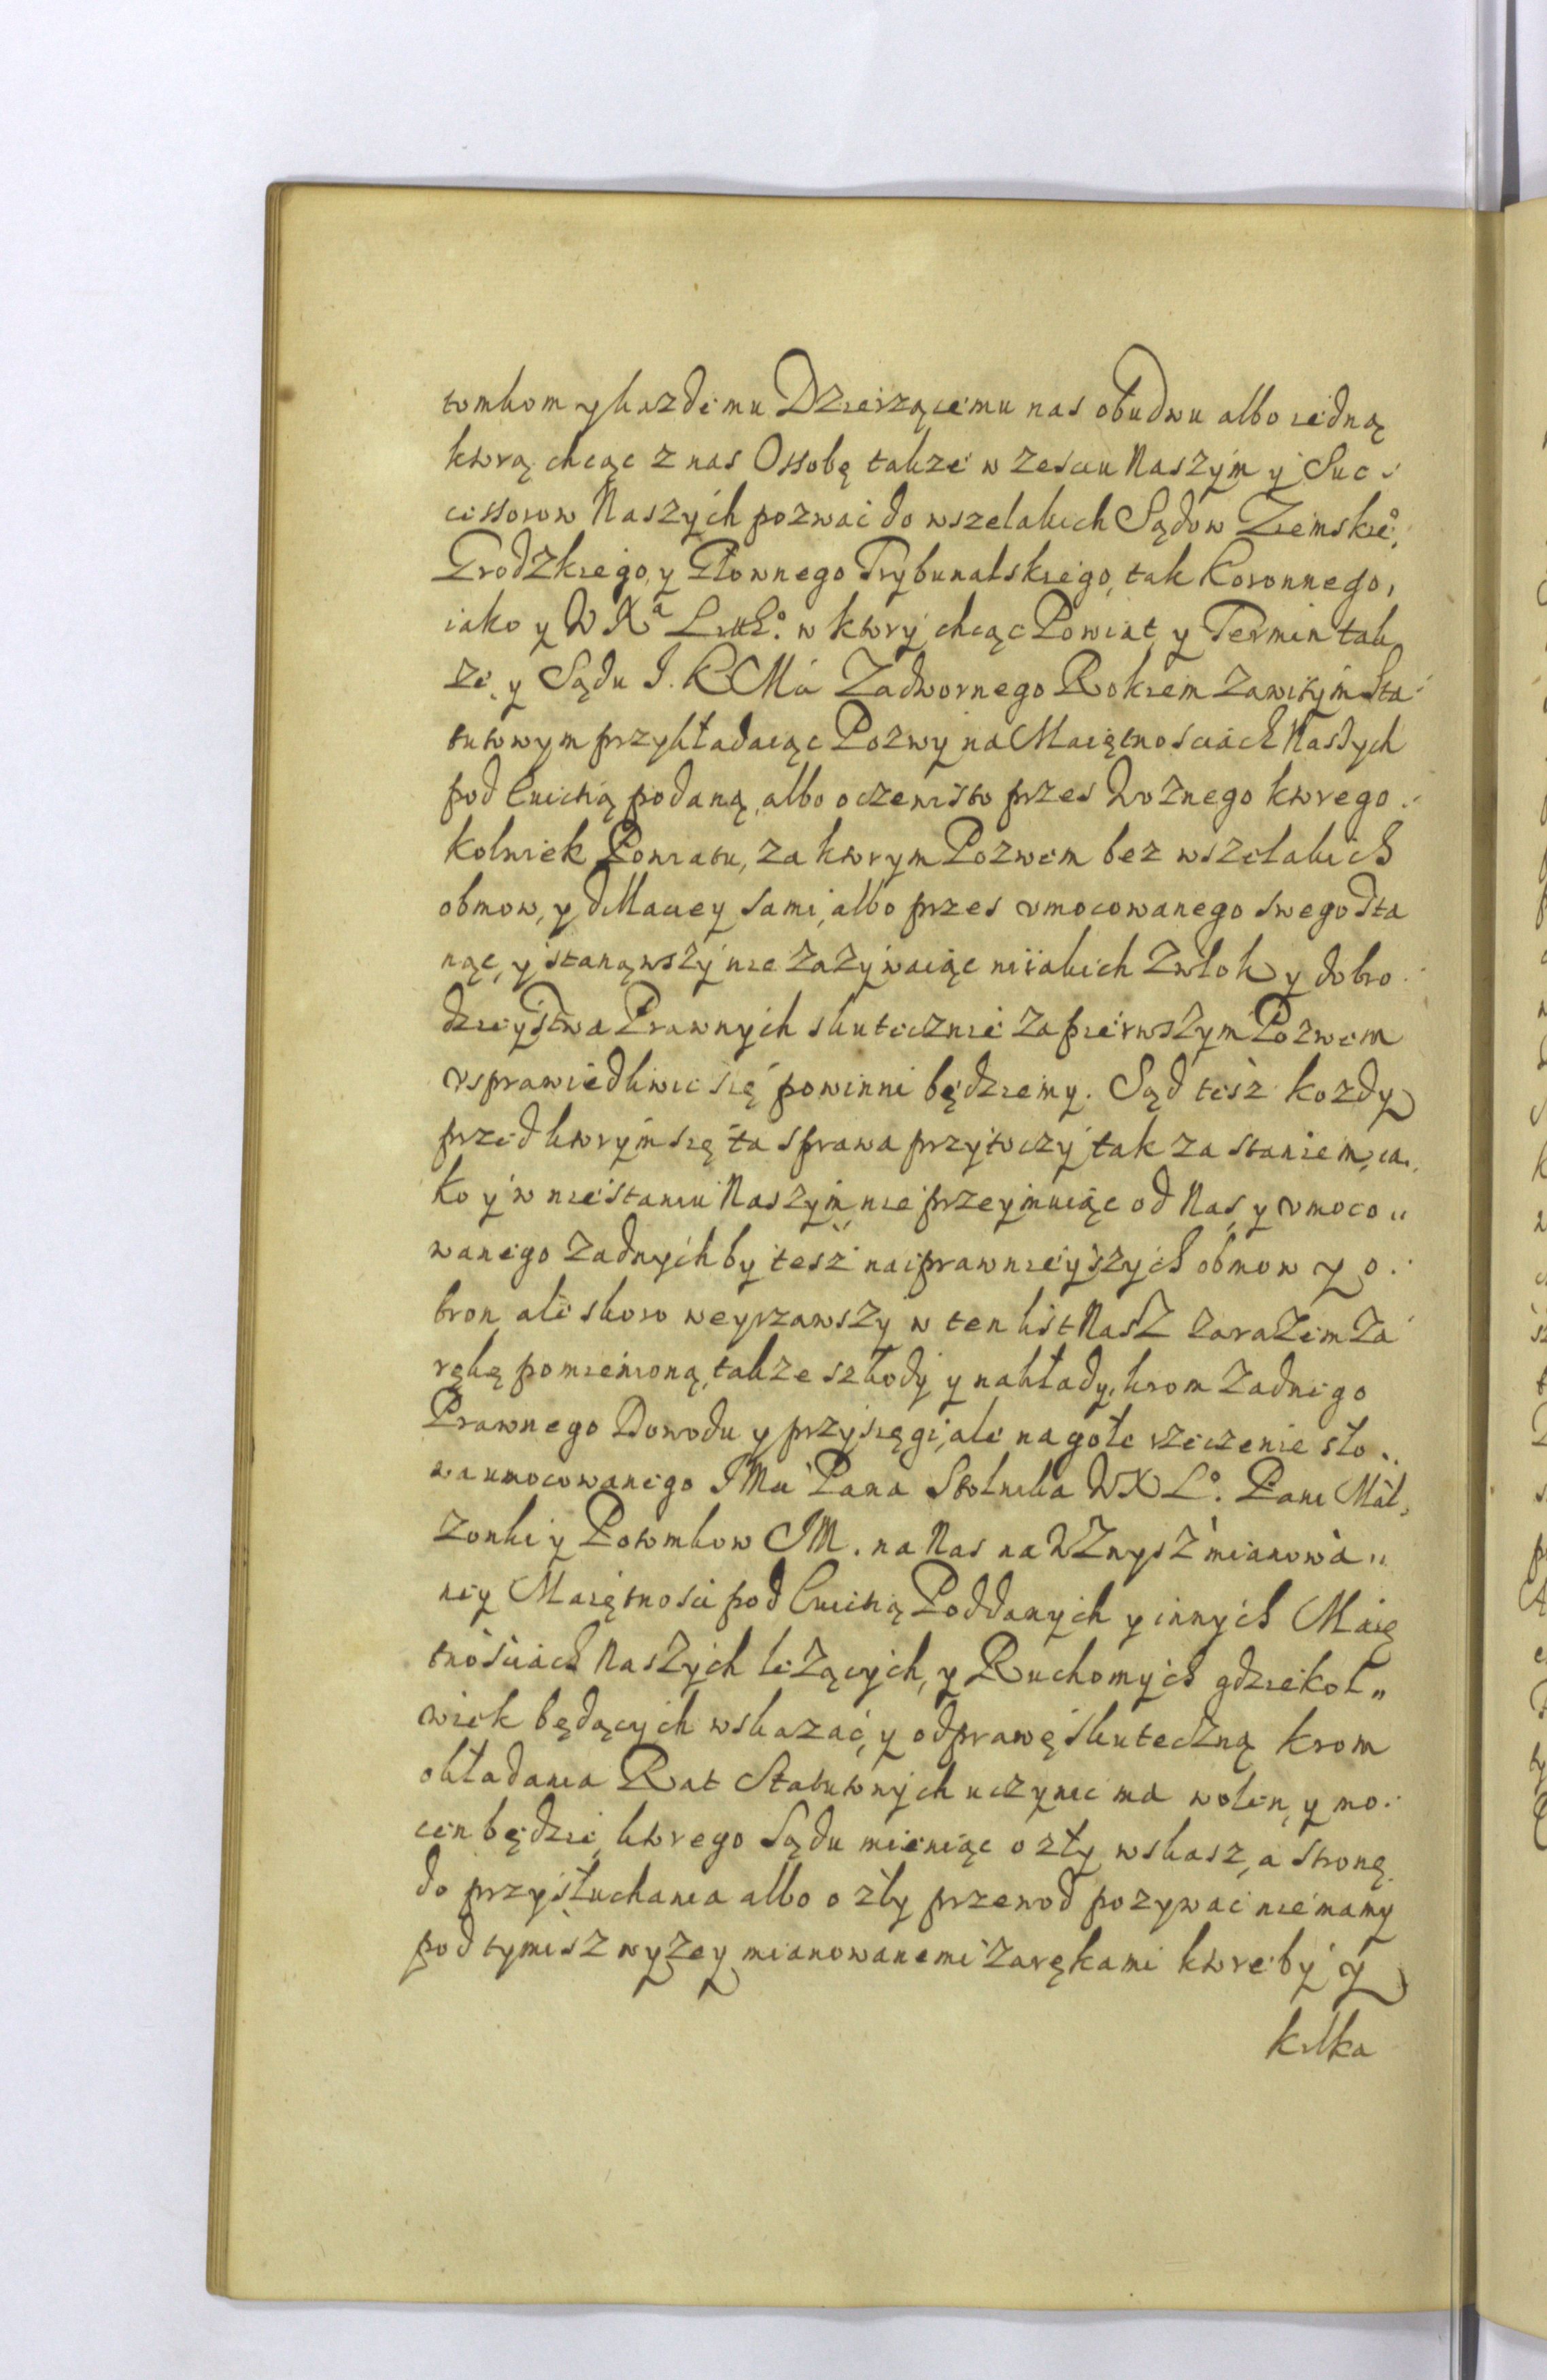 tomkom y kazdemu Dzierzącemu nas obudwu albo iedną
ktorą chcąc z nas Ossobę takze w zesciu Naszym y Suc-
cessorow Naszych pozwac do wszelakich Sądow Ziemskieº,
Grodzkiego, y Głownego Trybunalskiego, tak Koronnego,
iako y W Xª Littº. w ktory chcąc Powiat, y Termin tak
ze, y Sądu J. K Mci Zadwornego Rokiem zawitym Sta-
tutowym przykładaiąc Pozwy na Maiętnosciach Naszych
pod Ewictią podaną, albo oczewisto przes Woznego ktorego-
kolwiek Powiatu, za ktorym Pozwem bez wszelakich
obmow, y dillaciey sami, albo przes vmocowanego swego sta
nąc, y stanąwszy nie zazywaiąc niiakich zwłok y dobro-
dzieystwa Prawnych skutecznie za pierwszym Pozwem
vsprawiedliwic się powinni będziemy. Sąd tesz kozdy
przed ktorym się ta sprawa przytoczy tak za staniem, ia„
ko y w niestaniu Naszym, nie przeymuiąc od Nas, y vmoco„
wanego zadnych by tesz naiprawnieyszych obmow y o-
bron, ale skoro weyrzawszy w ten list Nasz zarazem za
rękę pomienioną, takze szkody y nakłady, krom zadnego
Prawnego Dowodu y przysięgi, ale na gołe rzeczenie sło„
wa umocowanego JMci Pana Stolnika WX Lº. Pani Mał,
zonki y Potomkow JM. na Nas na WZwysz mianowa„
ney Maiętnosci pod Ewictią Poddanych y innych Maię
tnosciach Naszych lezących, y Ruchomych gdziekol„
wiek będących wskazac, y odprawę skuteczną krom
okładania Rat Statutnych uczynic ma wolen, y mo-
cen będzie, ktorego Sądu mieniąc o zły wskasz, a stronę
do przysłuchania albo o zły przewod pozywac nie mamy
pod tymisz wyzey mianowanemi zarękami ktore by y
kilka